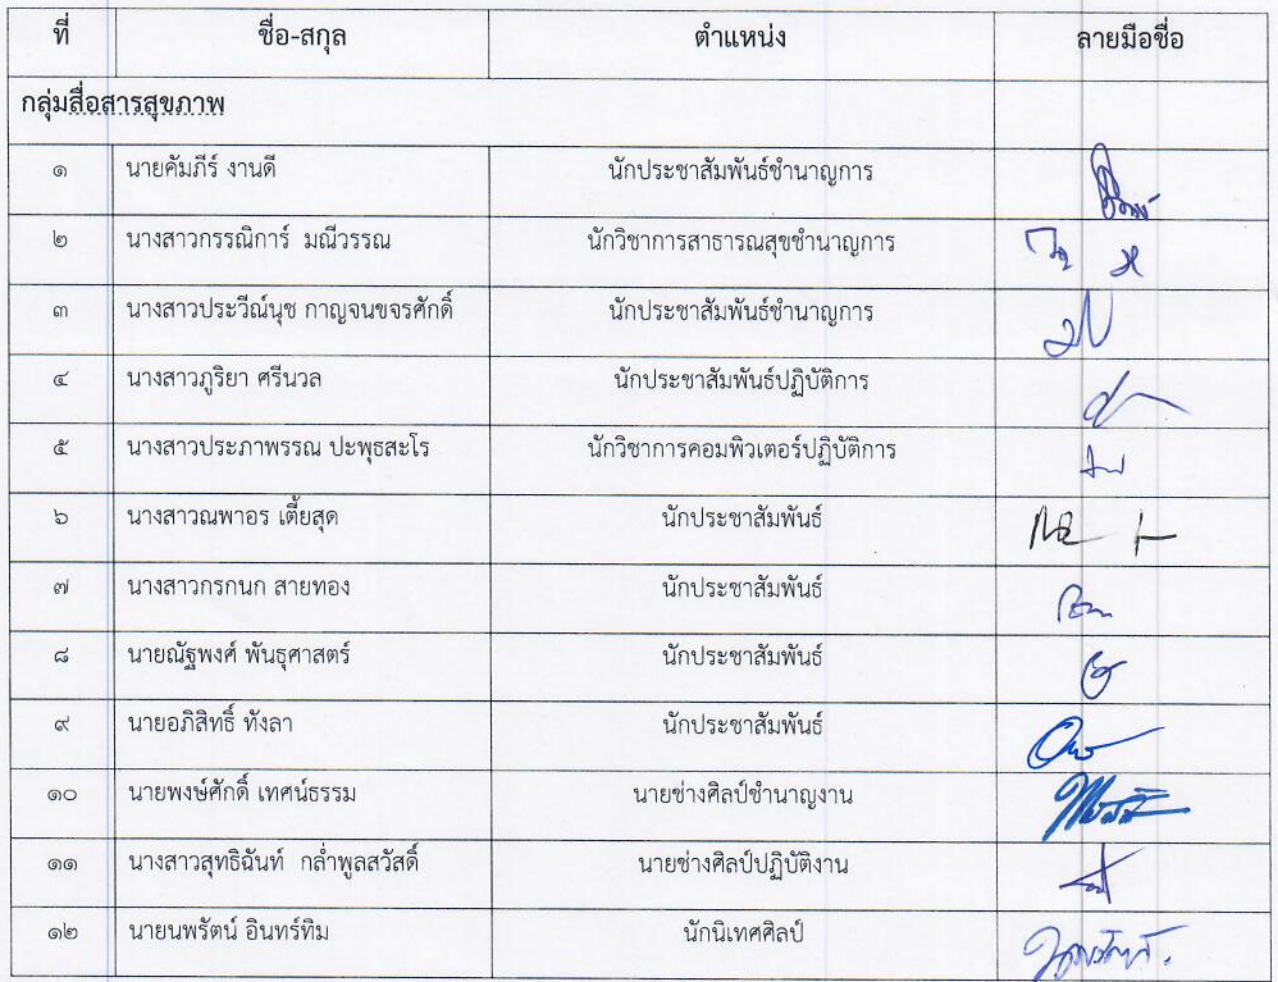 ที่ ชื่อ-สกุล ตำแหน่ง ลายมือชื่อ
กลุ่มสื่อสารสุขภาพ
๑ นายคัมภีร์ งานดี นักประชาสัมพันธ์ชำนาญการ
๒ นางสาวกรรณิการ์ มณีวรรณ นักวิชาการสาธารณสุขชำนาญการ
๓ นางสาวประวีณ์นุช กาญจนขจรศักดิ์ นักประชาสัมพันธ์ชำนาญการ
๔ นางสาวภูริยา ศรีนวล นักประชาสัมพันธ์ปฏิบัติการ
๕ นางสาวประภาพรรณ ปะพุธสะโร นักวิชาการคอมพิวเตอร์ปฏิบัติการ
๖ นางสาวณพาอร เตี้ยสุด นักประชาสัมพันธ์
๗ นางสาวกรกนก สายทอง นักประชาสัมพันธ์
๘ นายณัฐพงศ์ พันธุศาสตร์ นักประชาสัมพันธ์
๙ นายอภิสิทธิ์ ทังลา นักประชาสัมพันธ์
๑๐ นายพงษ์ศักดิ์ เทศน์ธรรม นายช่างศิลป์ชำนาญงาน
๑๑ นางสาวสุทธิฉันท์ กล่ำพูลสวัสดิ์ นายช่างศิลป์ปฏิบัติงาน
๑๒ นายนพรัตน์ อินทร์ทิม นักนิเทศศิลป์